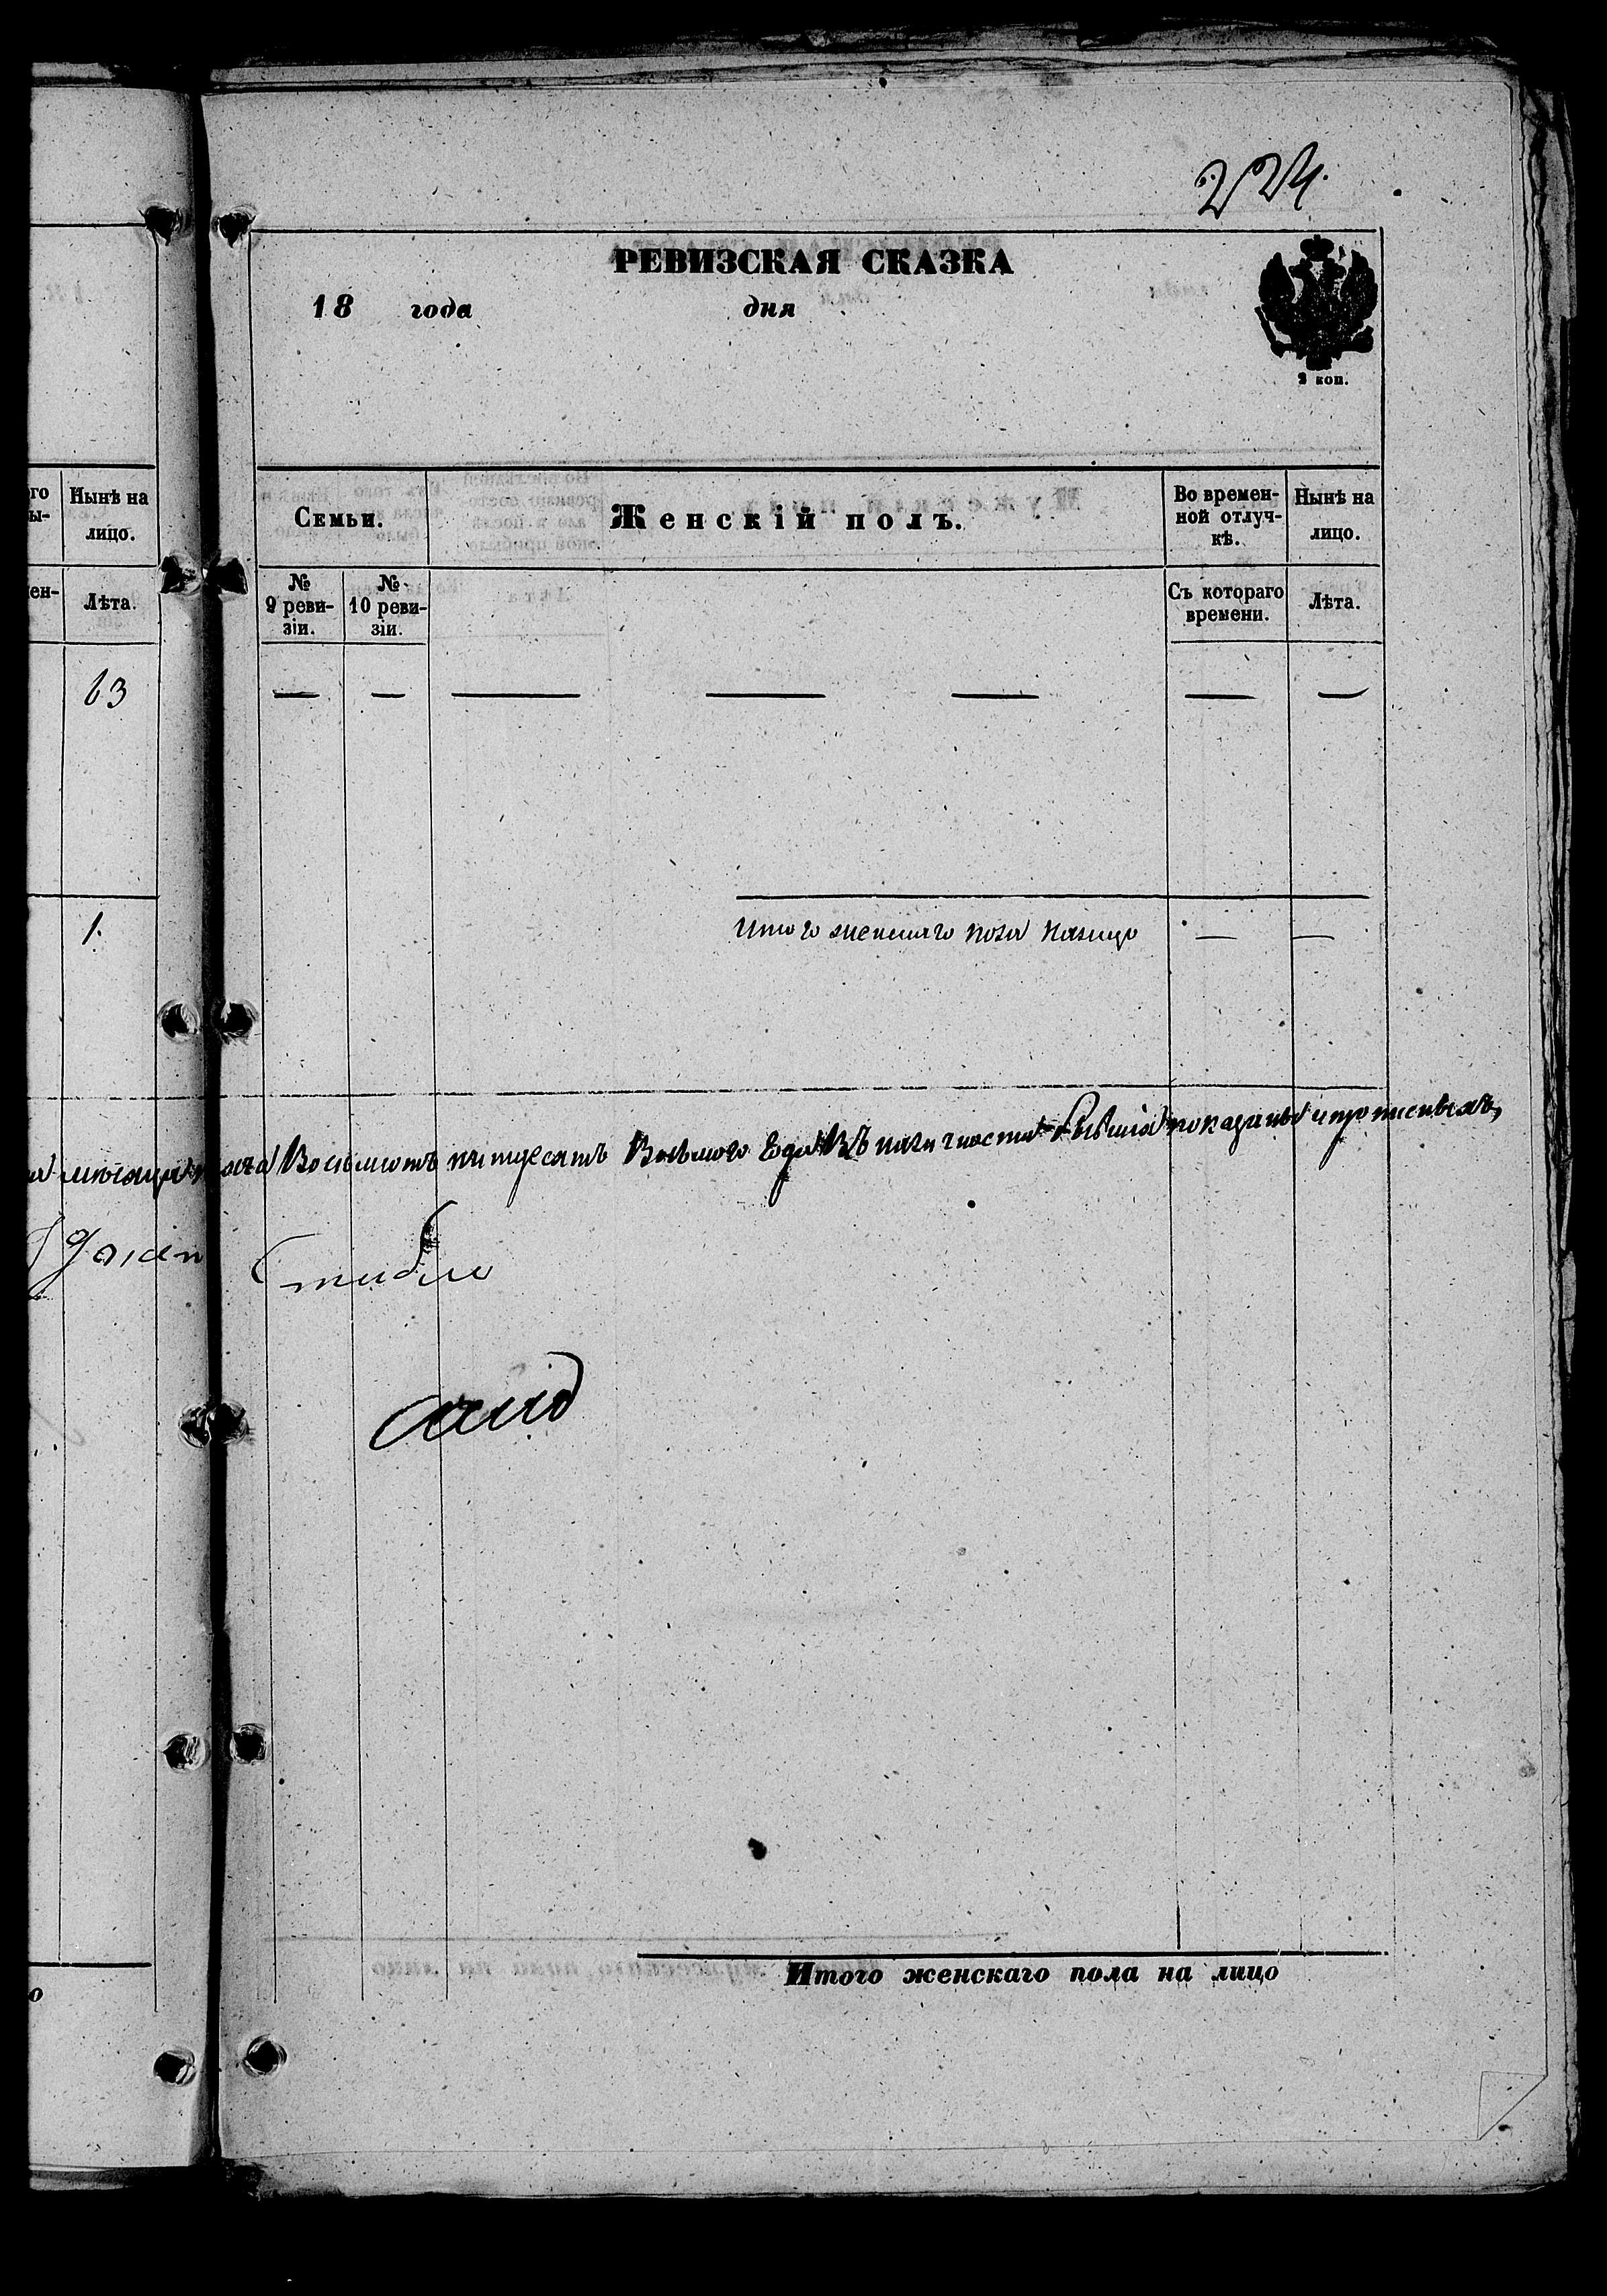 224.
РЕВИЗСКАЯ СКАЗКА
18 года дня
2 коп.
го
ы-
Нынѣ на
лицо.
Семьи.
Женскій полъ.
Во времен-
ной отлуч-
кѣ.
Нынѣ на
лицо.
ен-
Лѣта.
№
9 реви-
зіи.
№
10 реви-
зіи.
Съ котораго
времени.
Лѣта.
63
— — — — — — —
1.
Итого женскаго пола налицо — —
Восемьсотъ пятдесятъ Восьмаго Года Въ наличности показаны
о
Итого женскаго пола на лицо